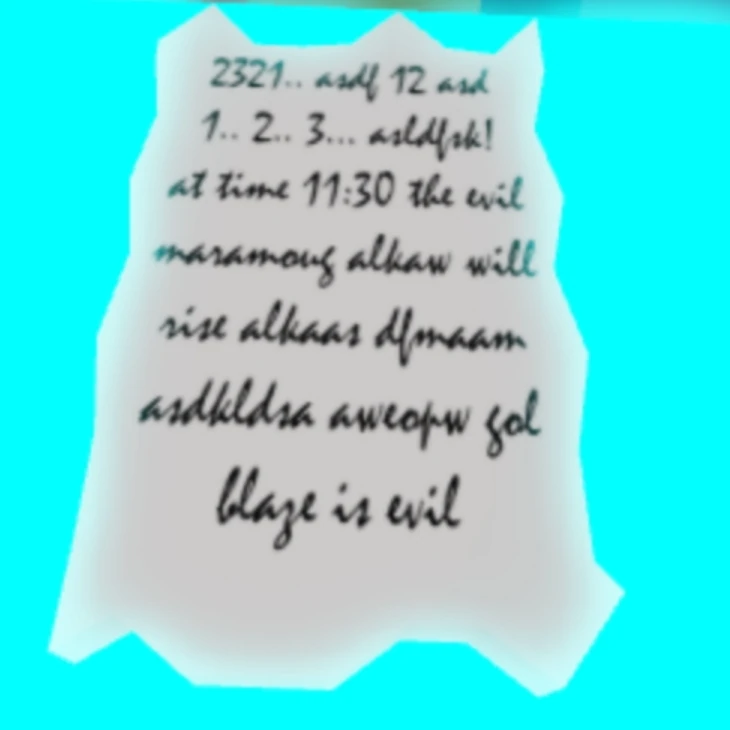 2321.. asdf 12 asd
1.. 2.. 3... asldfsk!
at time 11:30 the evil
maramoug alkaw will
rise alkaas dfmaam
asdkldsa aweopw gol
blaze is evil